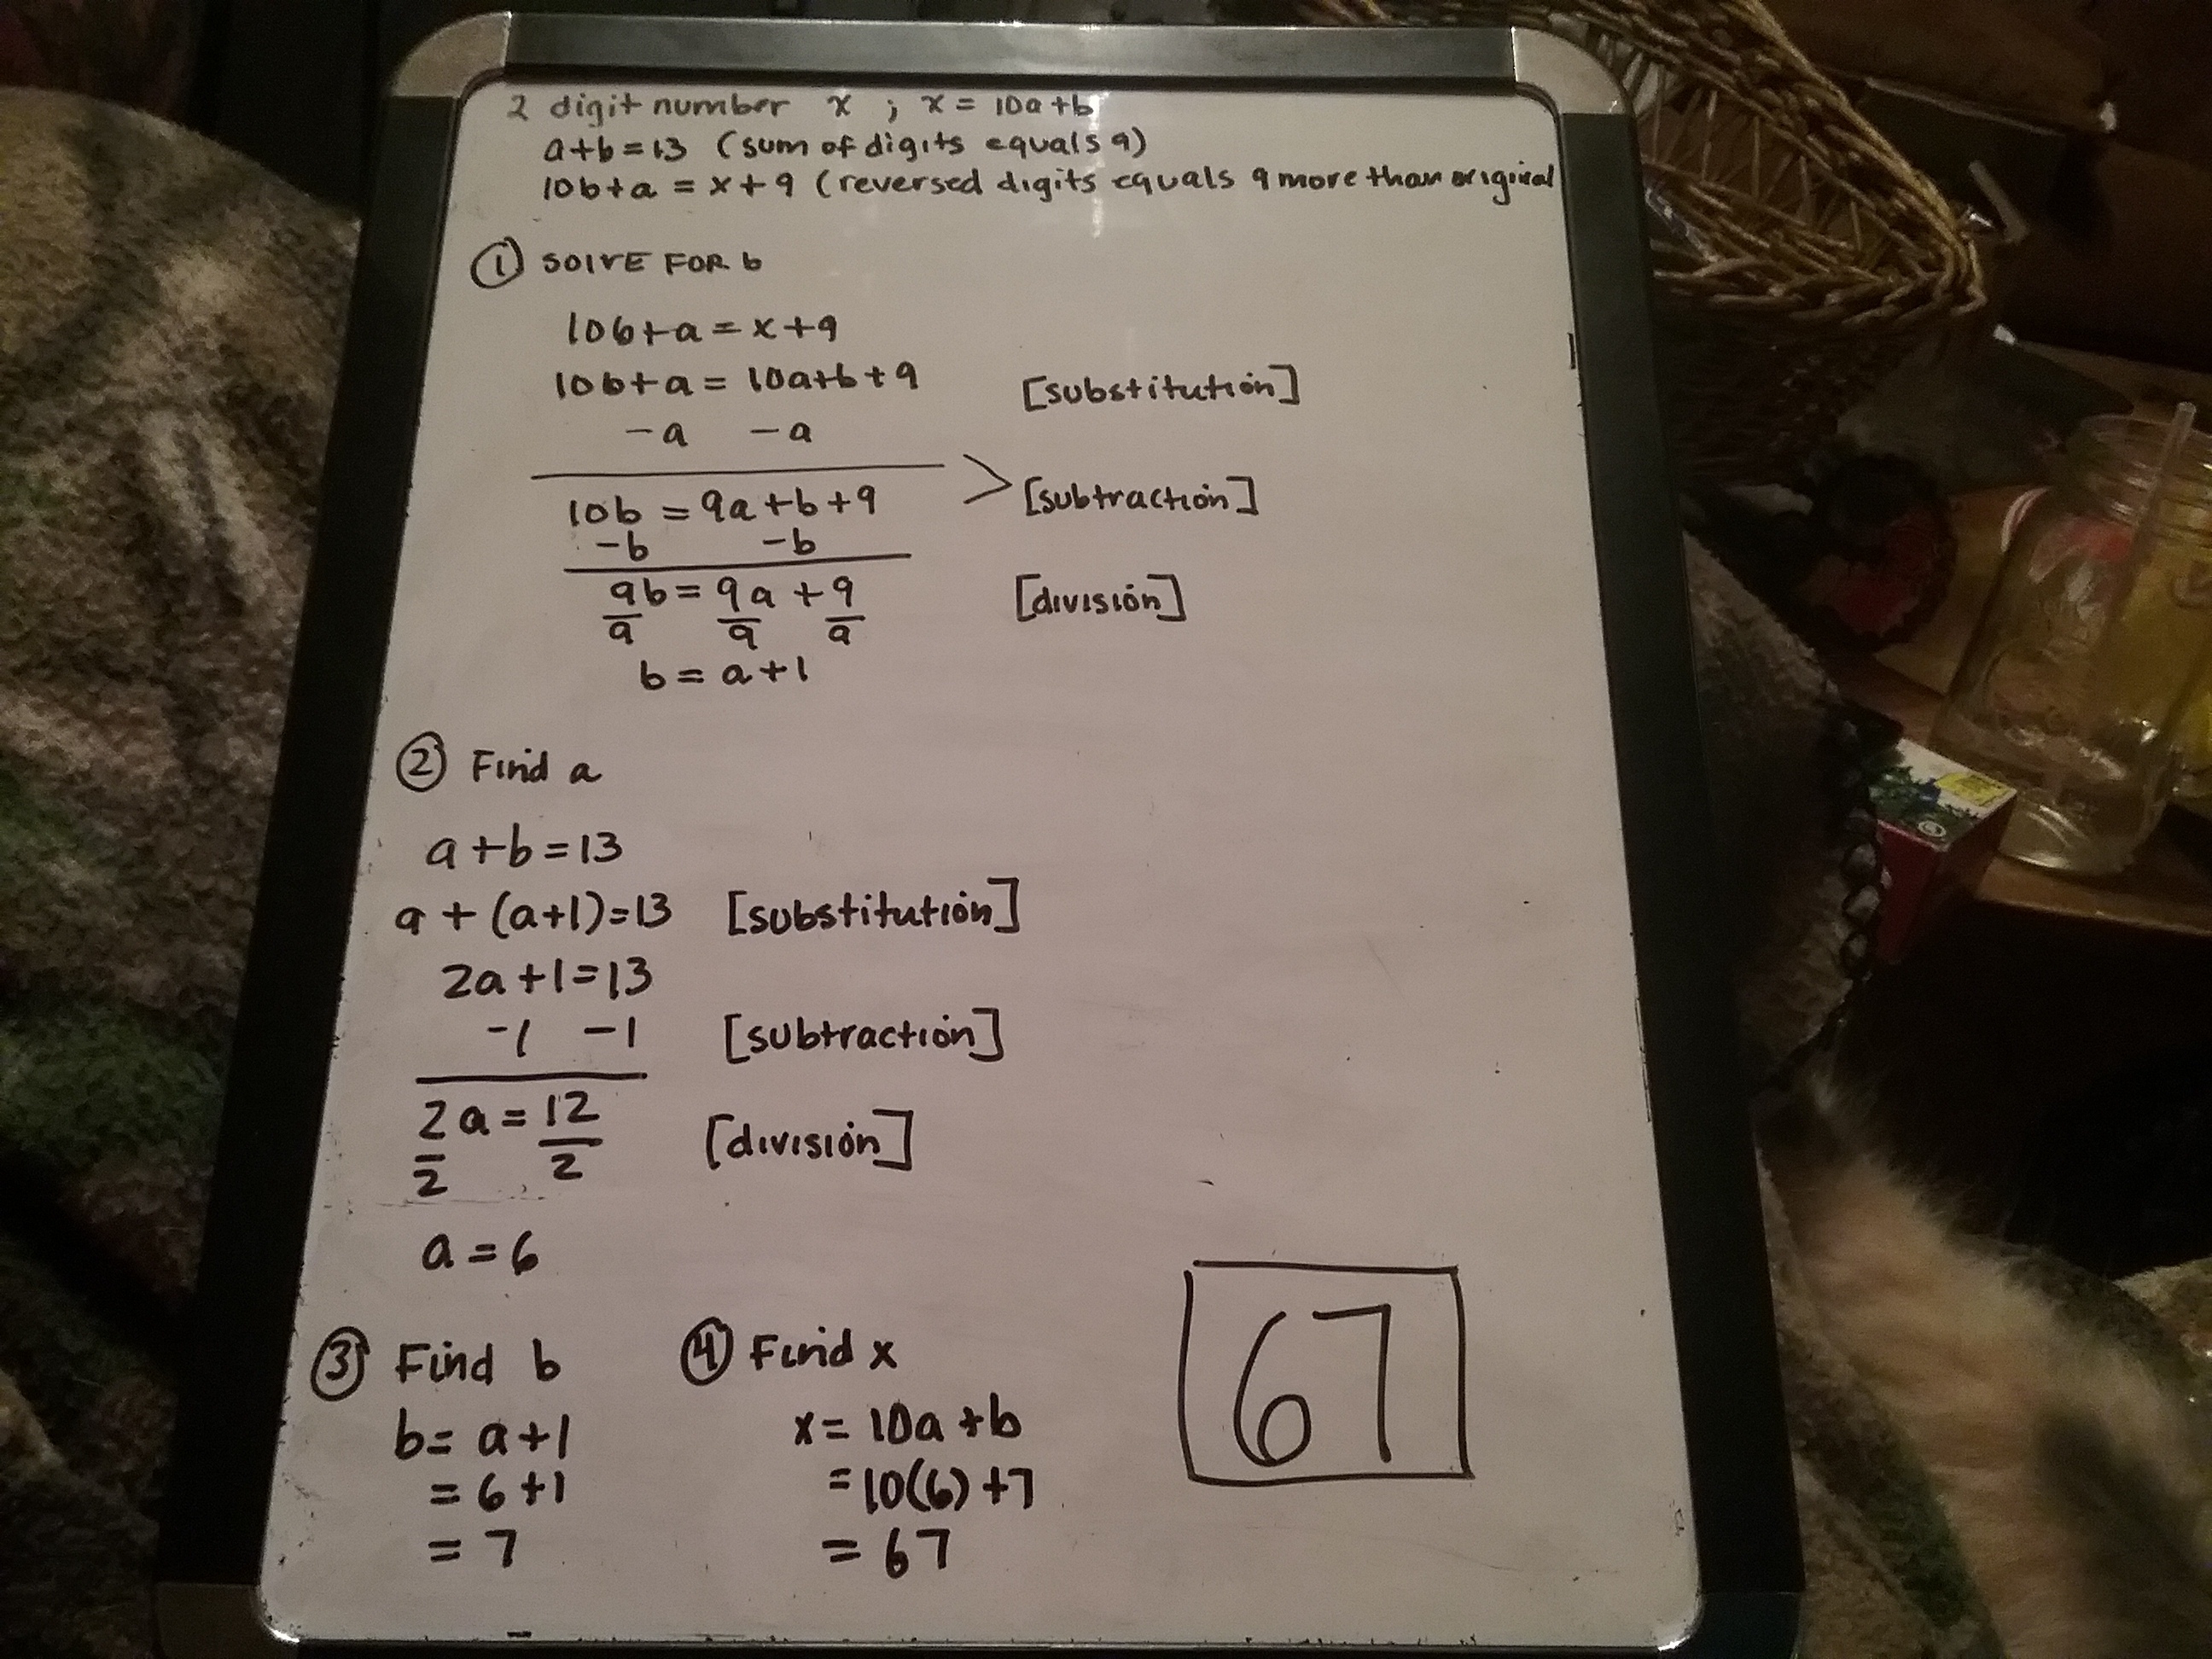 2 digit number x ; x = 10a+b
a+b=13 (sum of digits equals 9)
10b+a = x+9 (reversed digits equals 9 more than original
① SOLVE FOR b
10b+a = x+9
10b+a = 10a+b+9 [substitution]
-a -a
> [subtraction]
10b = 9a+b+9
-b -b
9b = 9a + 9 [division]
9 9 9
b = a+1
② Find a
a+b=13
a + (a+1)=13 [substitution]
2a+1=13
-1 -1 [subtraction]
2a = 12 [division]
2 2
a = 6
③ Find b
b= a+1
= 6+1
= 7
④ Find x
x= 10a+b
= 10(6)+7
= 67
67